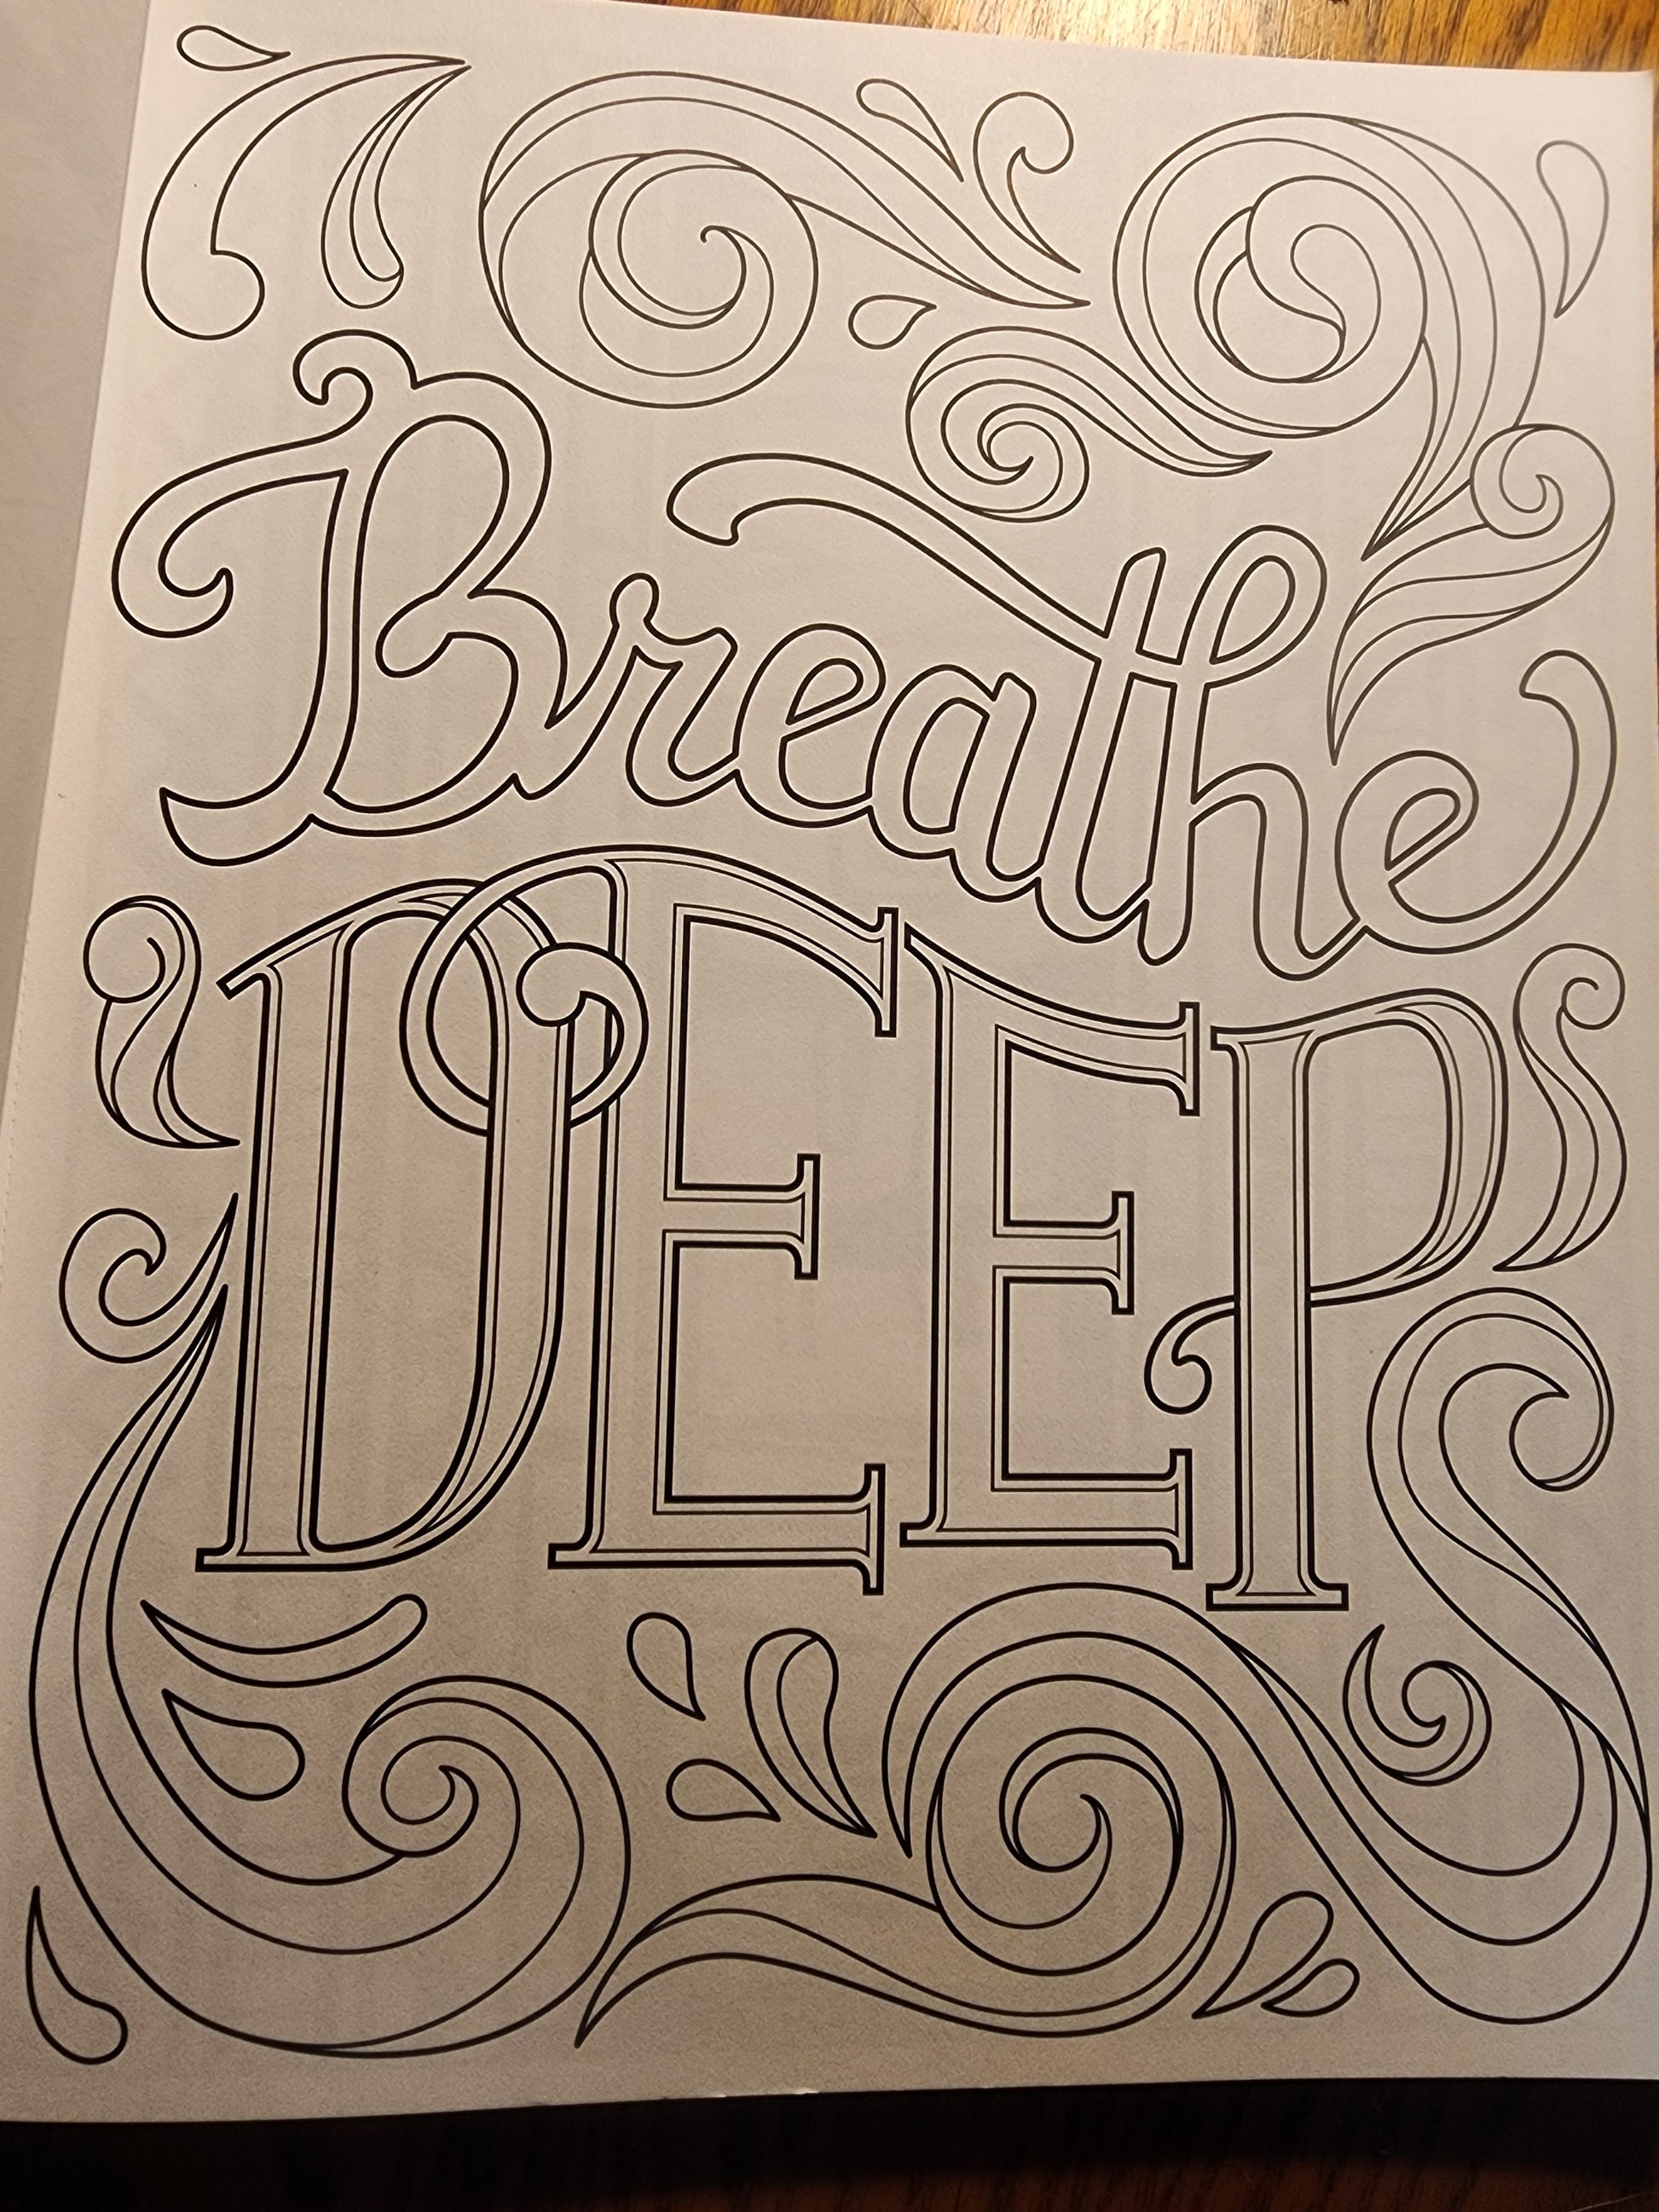 Breathe
DEEP